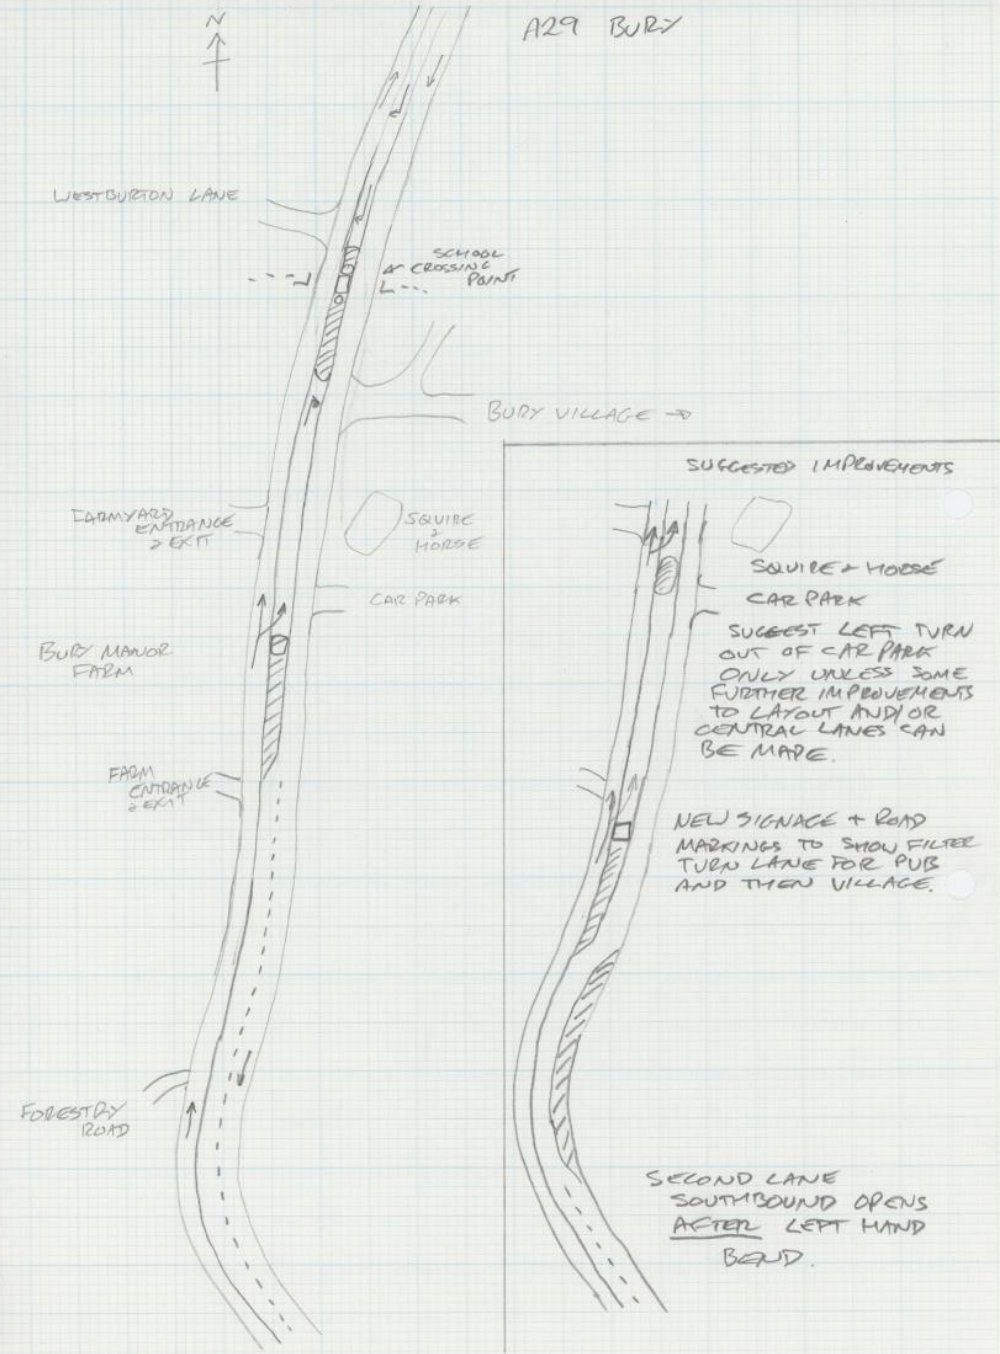 A29 BURY
N
WESTBURTON LANE
SCHOOL
CROSSING
POINT
BURY VILLAGE →
FARMYARD
ENTRANCE
& EXIT
SQUIRE
&
HORSE
CAR PARK
BURY MANOR
FARM
FARM
ENTRANCE
& EXIT
FORESTRY
ROAD
SUGGESTED IMPROVEMENTS
SQUIRE & HORSE
CAR PARK
SUGGEST LEFT TURN
OUT OF CAR PARK
ONLY UNLESS SOME
FURTHER IMPROVEMENTS
TO LAYOUT AND/OR
CENTRAL LANES CAN
BE MADE.
NEW SIGNAGE + ROAD
MARKINGS TO SHOW FILTER
TURN LANE FOR PUB
AND THEN VILLAGE.
SECOND LANE
SOUTHBOUND OPENS
AFTER LEFT HAND
BEND.